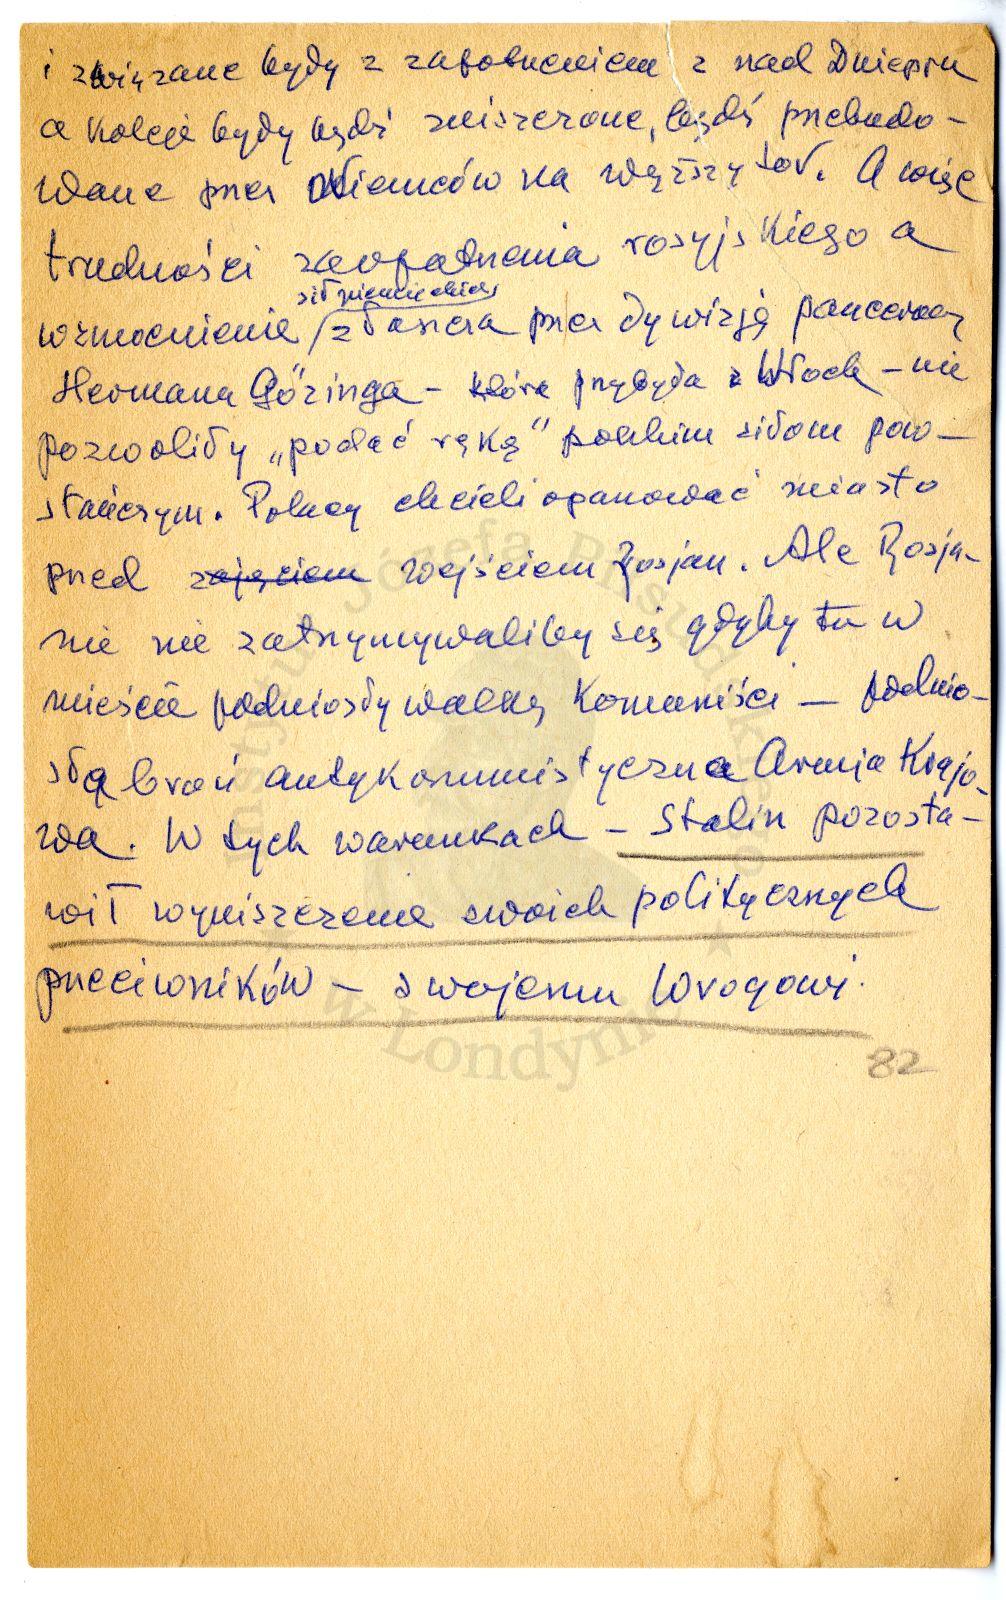 i związane były z zaopatrzeniem z nad Dniepru
a koleje były bądź zniszczone, bądź przebudo-
wane przez Niemców na węższy tor. A więc
trudności zaopatrzenia rosyjskiego a
sił niemieckich
wzmocnienie / zwłaszcza przez dywizję pancerną
Hermana Göringa – która przybyła z Włoch – nie
pozwoliły „podać ręką” polskim siłom pow-
stańczym. Polacy chcieli opanować miasto
przed zajęciem wejściem Rosjan. Ale Rosja-
nie nie zatrzymywaliby się gdyby tu w
mieście podniosły walkę Komuniści – podnio-
słą broń antykomunistyczna Armia Krajo-
wa. W tych warunkach – Stalin pozosta-
wił wyniszczenie swoich politycznych
przeciwników – swojemu wrogowi.
82
Instytut Józefa Piłsudskiego
w Londynie